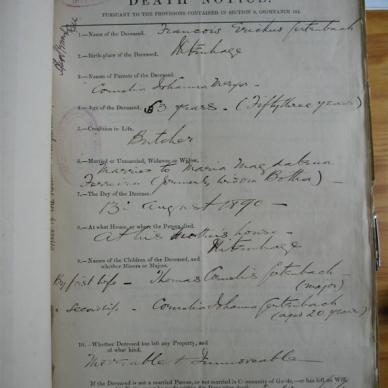 DEATH NOTICE.
PURSUANT TO THE PROVISIONS CONTAINED IN SECTION 9, ORDINANCE 104.
1.—Name of the Deceased. Francois
2.—Birth-place of the Deceased. Uitenhage
3.—Names of Parents of the Deceased.
Cornelia Johanna
4.—Age of the Deceased. 53 years — (Fifty three years)
5.—Condition in Life.
Butcher
6.—Married or Unmarried, Widower or Widow.
Married to Maria Magdalena
Ferreira (formerly widow Botha) —
7.—The Day of the Decease.
13th August 1890 —
8.—At what House or where the Person died.
At his house —
Uitenhage
9.—Names of the Children of the Deceased,
and whether Minors or Majors.
By first wife — Thomas Cornelis
(major)
Cornelia Johanna
(aged 20 years)
10.—Whether Deceased has left any Property, and
of what kind.
Moveable & Immoveable
If the Deceased is not a married Person, or not married in Community of Goods,—or has left no Will,